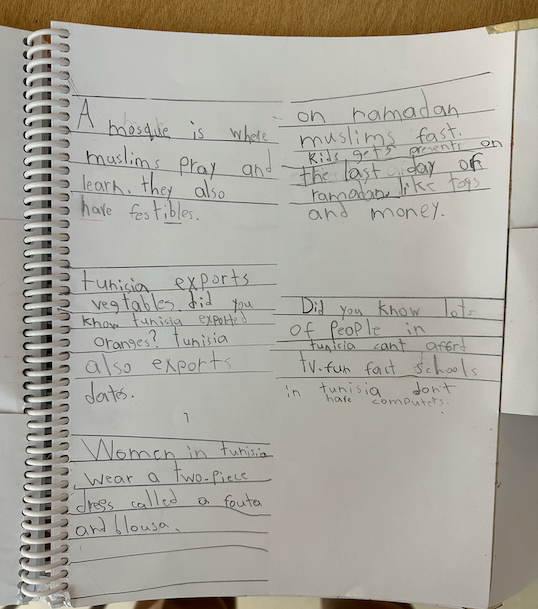 A mosque is where
muslims pray and
learn. they also
have festibles.
on ramadan
muslims fast.
kids gets presents on
the last day of
ramadan. like toys
and money.
tunisia exports
vegtables. did you
know tunisia exported
oranges? tunisia
also exports
dates.
Did you know lots
of people in
tunisia cant afort
tv. fun fact schools
in tunisia dont
have computers.
Women in tunisia
wear a two-piece
dress called a fouta
and blousa.